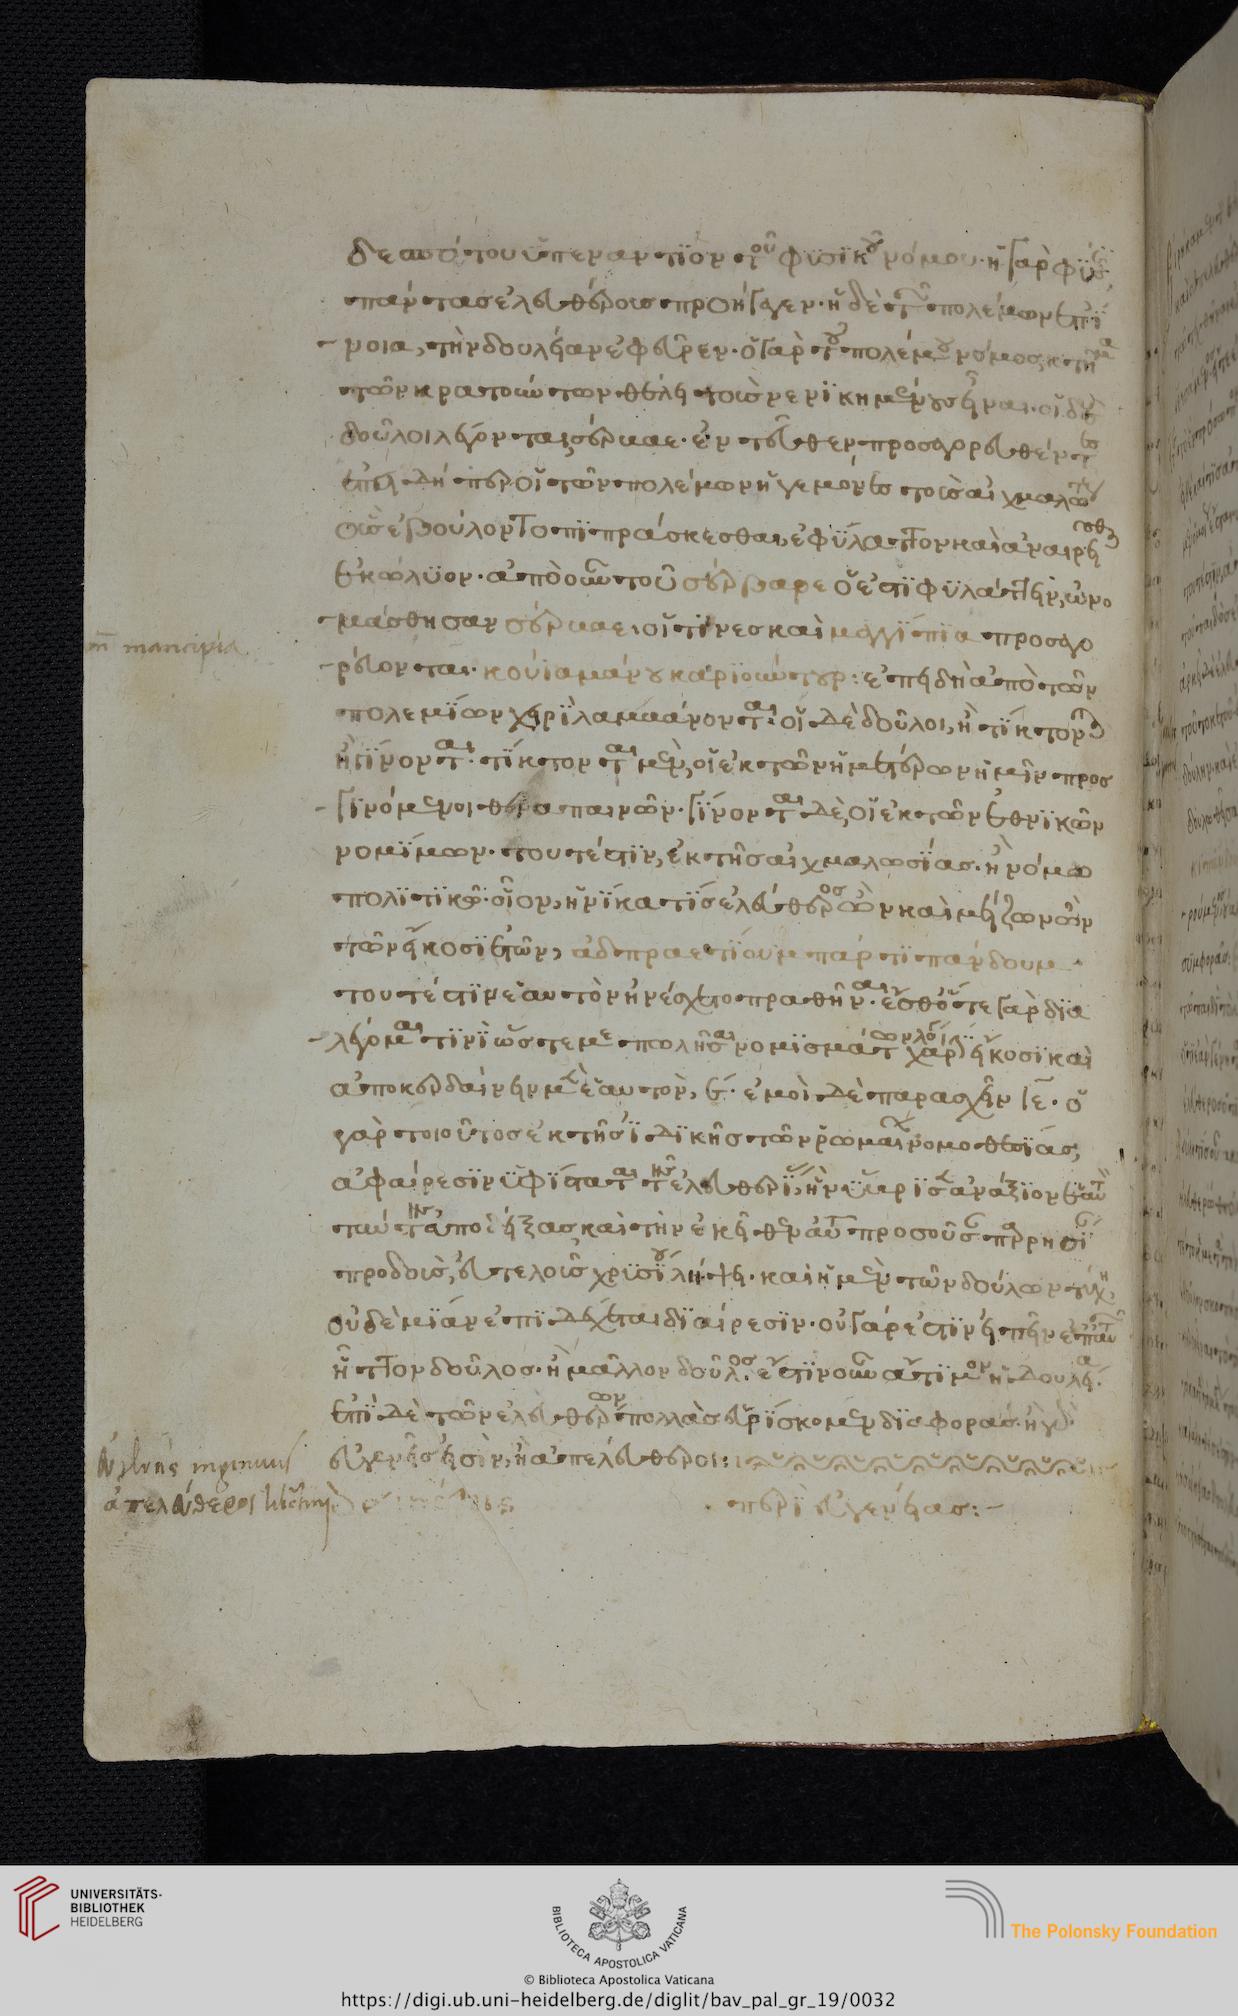 δεσπότου ὑπεναντίον τοῦ φυσικοῦ νόμου· ἡ γὰρ φύσις
πάντας ἐλευθέροις προήγαγεν· ἡ δὲ τῶν πολέμων ἐπί
νοια, τὴν δουλείαν ἐφεῦρεν· ὁ γὰρ τοῦ πολέμου νόμος κτῆμα
τῶν κρατούντων θέλει τοὺς νενικημένους εἶναι· οἱ δὲ
δοῦλοι λέγονται σέρκαε· ἐντεῦθεν προσαγορευθέντες
ἐπειδήπερ οἱ τῶν πολέμων ἡγεμόνες τοὺς αἰχμαλώτ
ους ἐβούλοντο πιπράσκεσθαι, ἐφύλαττον καὶ ἀναιρεῖσθαι
ἐκώλυον· ἀπὸ οὖν τοῦ σέρβαρε ὅ ἐστι φυλάττειν, ὠνο
μάσθησαν σέρκαε· οἵτινες καὶ μαγγίπια προσαγο
ρεύονται· κούϊα μάνου καπιοῦντυρ: ἐπειδὴ ἀπὸ τῶν
πολεμίων χειρὶ λαμβάνονται· οἱ δὲ δοῦλοι, ἢ τίκτονται
ἢ γίνονται· τίκτονται μὲν, οἱ ἐκ τῶν ἡμετέρων ἡμῖν προσ
γινόμενοι θεραπαινῶν· γίνονται δὲ, οἱ ἐκ τῶν ἐθνικῶν
νομίμων· τουτέστιν, ἐκ τῆς αἰχμαλωσίας· ἢ νόμω
πολιτικῷ· οἷον, ἡνίκα τὶς ἐλεύθερος ὢν καὶ μείζων ὢν
τῶν εἴκοσι ἐτῶν, ἀδ πραετίουμ παρτιπάνδουμ
τουτέστιν ἑαυτὸν ἠνέσχετο πραθῆναι· ἔσθ' ὅτε γὰρ δια
λέγομαι τινὶ ὥστε με πωλῆσαι νομισμάτων λόγου χάριν εἴκοσι καὶ
ἀποκερδαίνειν μὲν ἑαυτὸν, ε· ἐμοὶ δὲ παρασχεῖν ιε· ὁ
γὰρ τοιοῦτος ἐκ τῆς ἰδικῆς τῶν ῥωμαίων νομοθεσίας,
ἀφαίρεσιν ὑφίσταται τῆς ἐλευθερίας, ἣν ὕβρισεν ἀνάξιον ἑαυτὸν
ταύτης ἀποδείξας καὶ τὴν ἐκεῖθεν αὐτῷ προσοῦσαν παρρησίαν
προδοὺς, εὐτελοῦς χρυσίου λήψει· καὶ ἡ μὲν τῶν δούλων τύχη,
οὐδεμίαν ἐπιδέχεται διαίρεσιν· οὐ γάρ ἐστιν εἰπεῖν ἐπ' αὐτῶν
ἧττον δοῦλος· ἢ μᾶλλον δοῦλος· ἔστιν οὖν ἄτιμον ἡ δουλεία·
ἐπὶ δὲ τῶν ἐλευθέρων πολλὰς εὑρίσκομεν διαφοράς· ἢ γὰρ
εὐγενεῖς εἰσὶν, ἢ ἀπελεύθεροι:
περὶ εὐγενείας:-
mancipia
εὐγενής ingenuus
ἀπελεύθεροι libertini
UNIVERSITÄTS-
BIBLIOTHEK
HEIDELBERG
BIBLIOTECA APOSTOLICA VATICANA
The Polonsky Foundation
© Biblioteca Apostolica Vaticana
https://digi.ub.uni-heidelberg.de/diglit/bav_pal_gr_19/0032